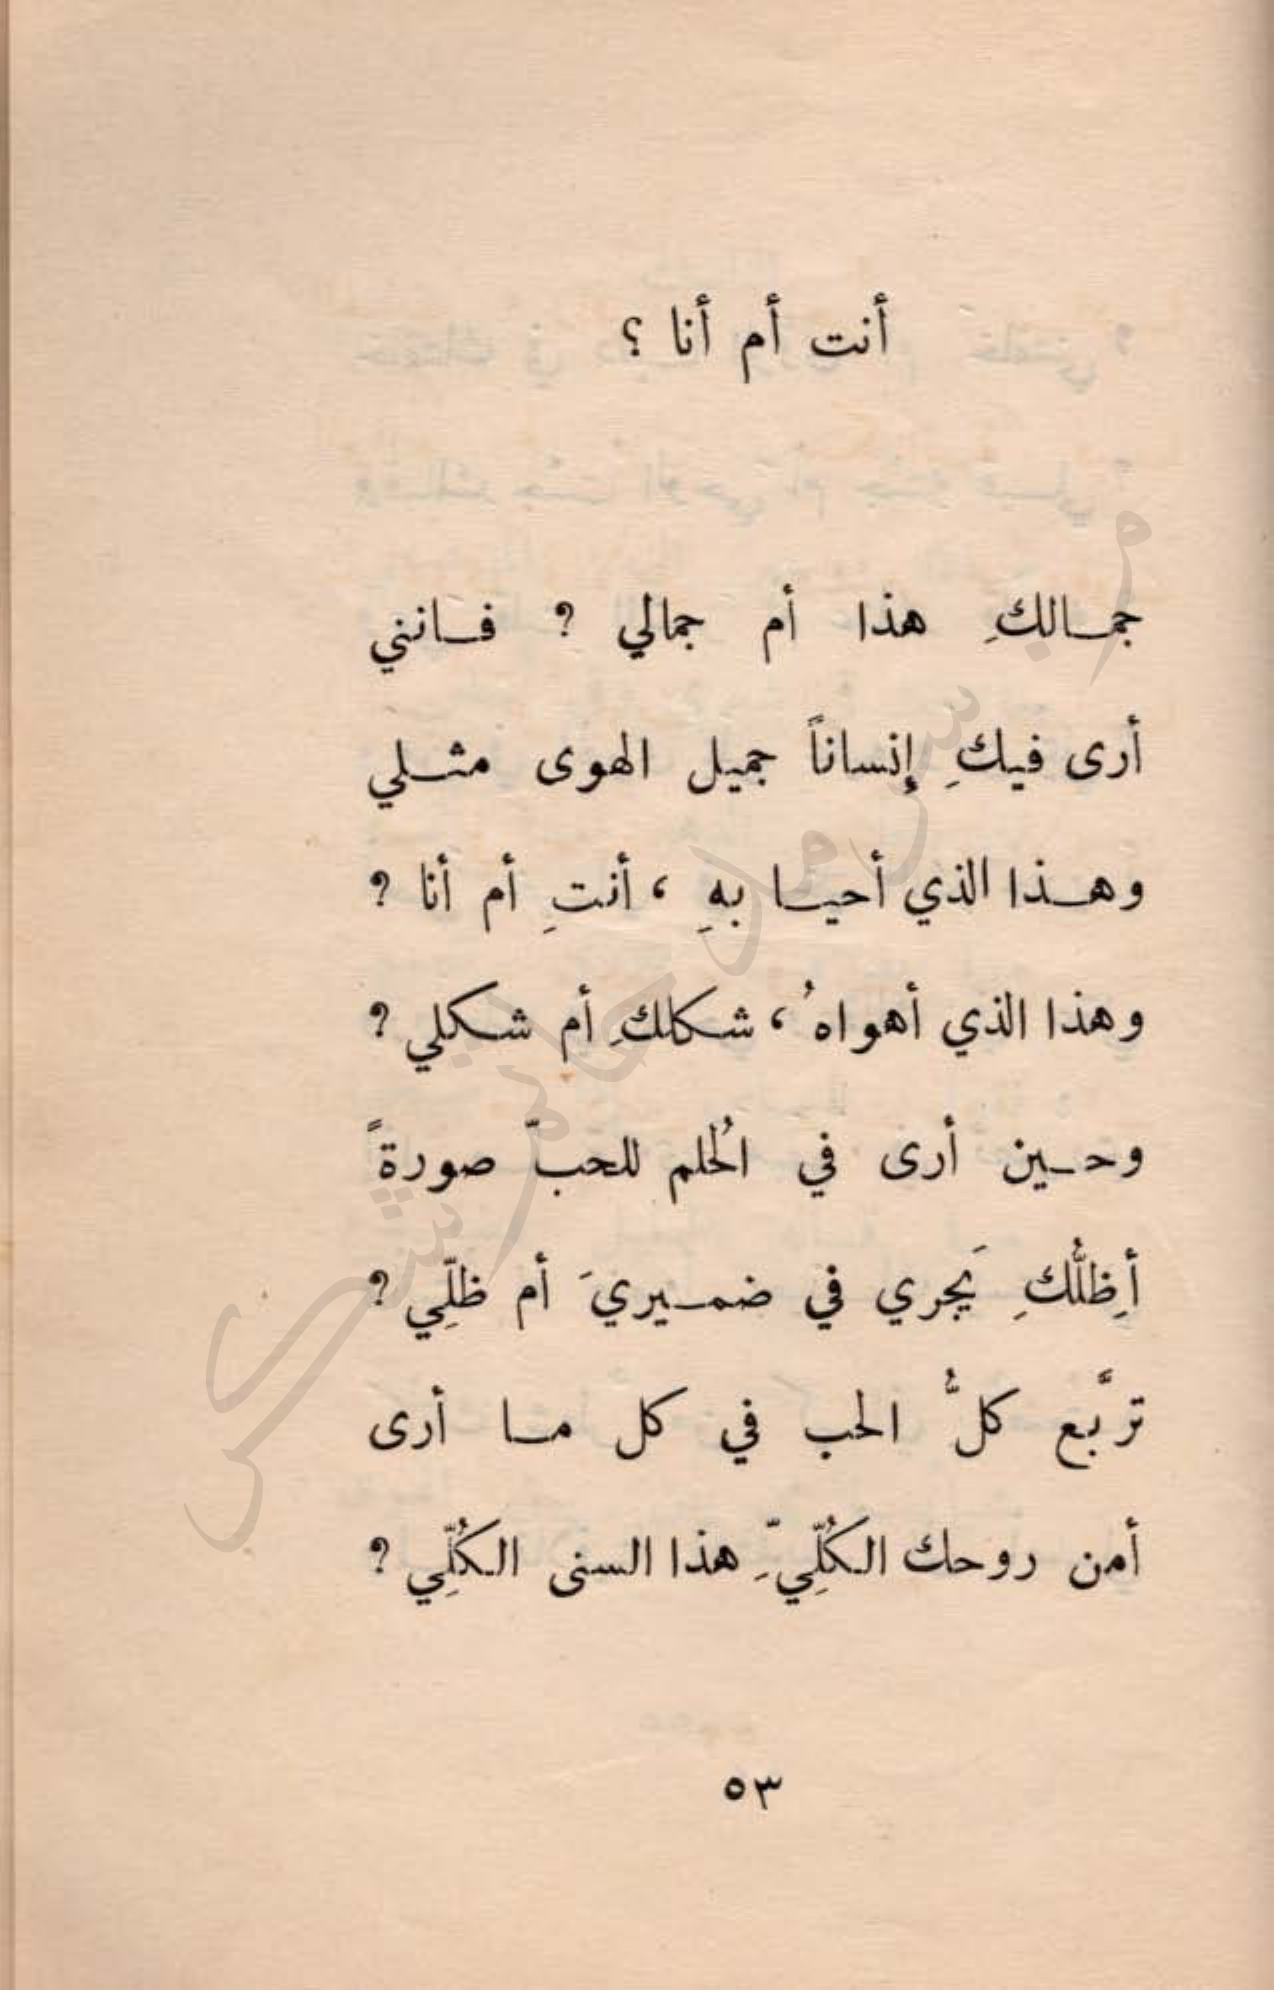 أنت أم أنا ؟
جمالكِ هذا أم جمالي ؟ فانني
أرى فيكِ إنساناً جميل الهوى مثلي
وهذا الذي أحيا بهِ ، أنتِ أم أنا ؟
وهذا الذي أهواهُ ، شكلكِ أم شكلي ؟
وحين أرى في الحُلم للحبّ صورةً
أظِلُّكِ يَجري في ضميريَ أم ظلِّي ؟
تربَّع كلُّ الحب في كل ما أرى
أمن روحك الكُلِّيِّ هذا السنى الكُلِّي ؟
٥٣